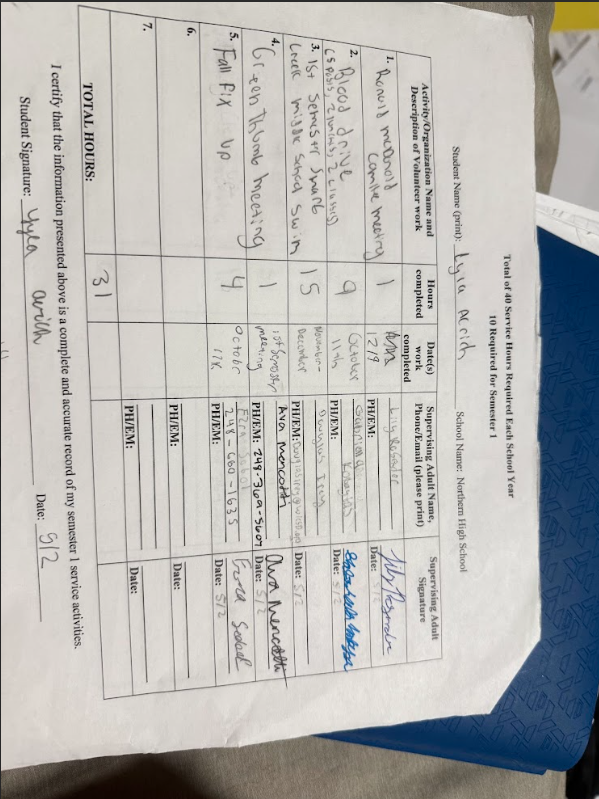 Total of 40 Service Hours Required Each School Year
10 Required for Semester 1
Student Name (print): Lyla School Name: Northern High School
Activity/Organization Name and Description of Volunteer work
Hours completed
Date(s) work completed
Supervising Adult Name, Phone/Email (please print)
Supervising Adult Signature
1. Ronald mcDonald
meeting
1
12/9
PH/EM:
Date: 5/2
2. Blood drive
9
October
11th
PH/EM:
Date: 5/2
3. 1st Semester
Creek middle School Swim
15
November-
December
Douglas
PH/EM:
Date: 5/2
4. Green Thumb meeting
1
1st Semester
meeting
Ava
PH/EM: 248-369-5607
Ava
Date: 5/2
5. Fall Fix Up
4
October
PH/EM: 248-660-1635
Date: 5/2
6.
PH/EM:
Date:
7.
PH/EM:
Date:
TOTAL HOURS:
31
I certify that the information presented above is a complete and accurate record of my semester 1 service activities.
Student Signature: Date: 5/2